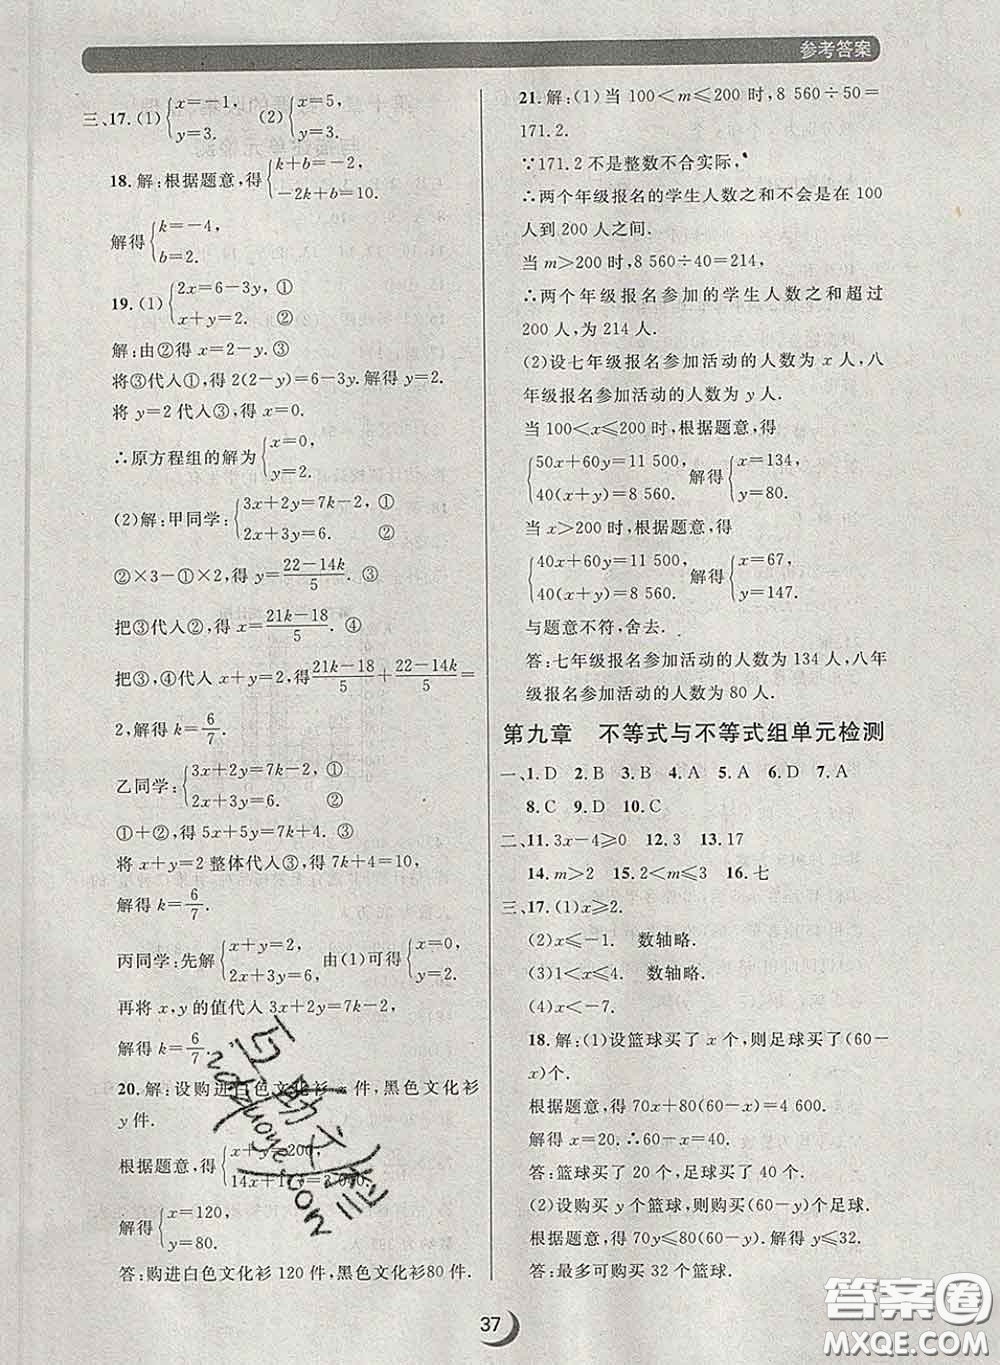 参考答案
三、17.(1){x=-1, y=3. (2){x=5, y=3.
18.解:根据题意,得{k+b=-2, -2k+b=10.
解得{k=-4, b=2.
19.(1){2x=6-3y, ① x+y=2. ②
解:由②得 x=2-y.③
将③代入①,得 2(2-y)=6-3y.解得 y=2.
将 y=2 代入③,得 x=0.
∴原方程组的解为{x=0, y=2.
(2)解:甲同学:{3x+2y=7k-2, ① 2x+3y=6. ②
②×3-①×2,得 y=(22-14k)/5. ③
把③代入②,得 x=(21k-18)/5. ④
把③,④代入 x+y=2,得(21k-18)/5+(22-14k)/5=
2,解得 k=6/7.
乙同学:{3x+2y=7k-2, ① 2x+3y=6. ②
①+②,得 5x+5y=7k+4. ③
将 x+y=2 整体代入③,得 7k+4=10,
解得 k=6/7.
丙同学:先解{x+y=2, 2x+3y=6, 由(1)可得{x=0, y=2.
再将 x,y 的值代入 3x+2y=7k-2,
解得 k=6/7.
20.解:设购进白色文化衫 x 件,黑色文化衫
y 件.
根据题意,得{x+y=200, 14x+
解得{x=120, y=80.
答:购进白色文化衫 120 件,黑色文化衫80 件.
21.解:(1)当 100<m≤200 时,8 560÷50=
171.2.
∵171.2 不是整数不合实际,
∴两个年级报名的学生人数之和不会是在 100
人到 200 人之间.
当 m>200 时,8 560÷40=214,
∴两个年级报名参加的学生人数之和超过
200 人,为 214 人.
(2)设七年级报名参加活动的人数为 x 人,八
年级报名参加活动的人数为 y 人.
当 100<x≤200 时,根据题意,得
{50x+60y=11 500, 40(x+y)=8 560. 解得{x=134, y=80.
当 x>200 时,根据题意,得
{40x+60y=11 500, 40(x+y)=8 560. 解得{x=67, y=147.
与题意不符,舍去.
答:七年级报名参加活动的人数为 134 人,八年
级报名参加活动的人数为 80 人.
第九章 不等式与不等式组单元检测
一、1.D 2.B 3.B 4.A 5.A 6.D 7.A
8.C 9.D 10.C
二、11.3x-4≥0 12.3 13.17
14.m>2 15.2<m≤3 16.七
三、17.(1)x≥2.
(2)x≤-1. 数轴略.
(3)1<x≤4. 数轴略.
(4)x<-7.
18.解:(1)设篮球买了 x 个,则足球买了(60-
x)个.
根据题意,得 70x+80(60-x)=4 600,
解得 x=20.∴60-x=40.
答:篮球买了 20 个,足球买了 40 个.
(2)设购买 y个篮球,则购买(60-y)个足球.
根据题意,得 70y≤80(60-y).解得 y≤32.
答:最多可购买 32 个篮球.
37
互助文科
nzhuayouge.com
答案圈
MXQE.COM